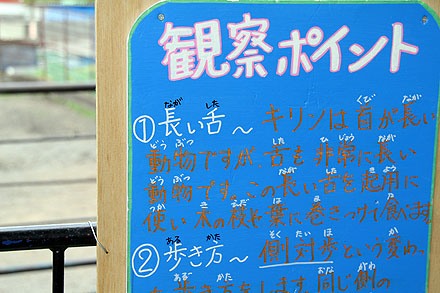 観察ポイント
①長い舌～キリンは首が長い
動物ですが、舌も非常に長い
動物です。この長い舌を起用に
使い木の枝や葉に巻きつけて食べます。
②歩き方～側対歩という変わ
歩き方をします。同じ側の